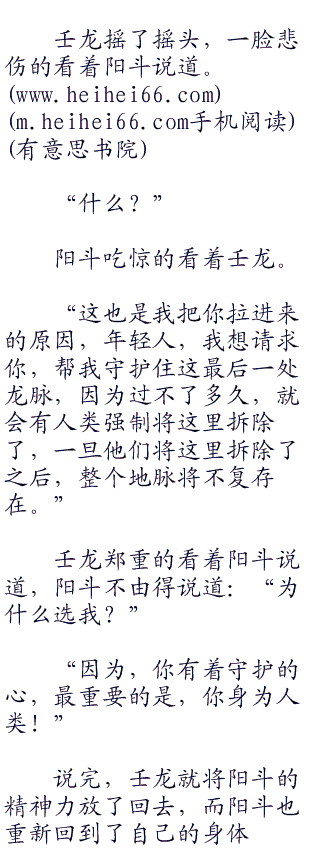 壬龙摇了摇头，一脸悲
伤的看着阳斗说道。
(www.heihei66.com)
(m.heihei66.com手机阅读)
(有意思书院)
“什么？”
阳斗吃惊的看着壬龙。
“这也是我把你拉进来
的原因，年轻人，我想请求
你，帮我守护住这最后一处
龙脉，因为过不了多久，就
会有人类强制将这里拆除
了，一旦他们将这里拆除了
之后，整个地脉将不复存
在。”
壬龙郑重的看着阳斗说
道，阳斗不由得说道：“为
什么选我？”
“因为，你有着守护的
心，最重要的是，你身为人
类！”
说完，壬龙就将阳斗的
精神力放了回去，而阳斗也
重新回到了自己的身体